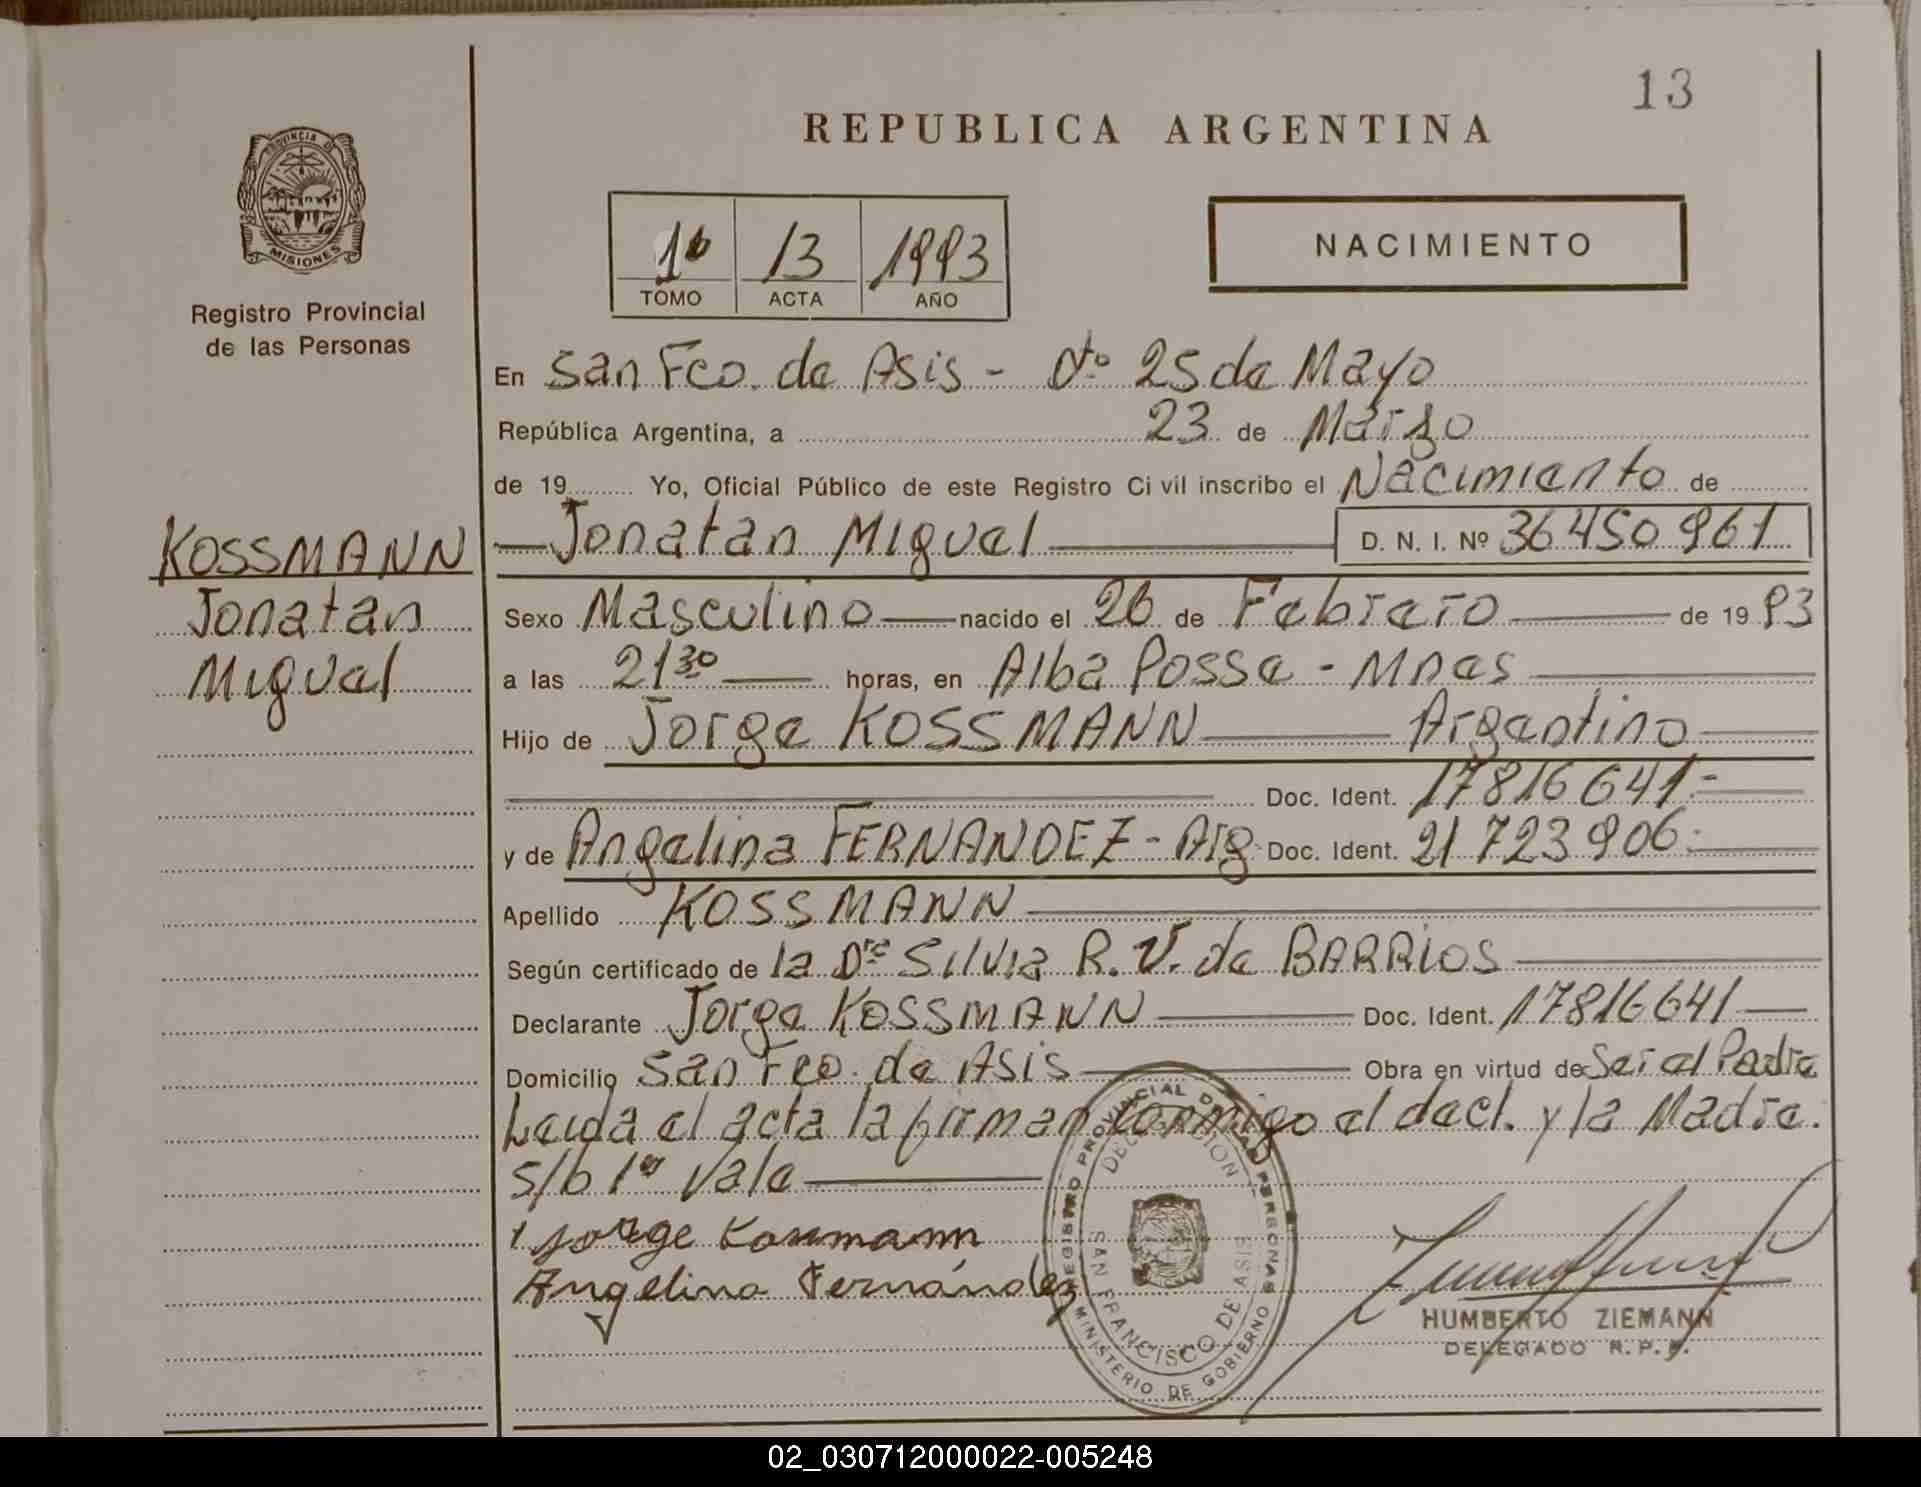 13
REPUBLICA ARGENTINA
PROVINCIA DE
MISIONES
Registro Provincial
de las Personas
1º 13 1993
TOMO ACTA AÑO
NACIMIENTO
En San Fco. de Asis - Dto 25 de Mayo
República Argentina, a 23 de Marzo
de 19 Yo, Oficial Público de este Registro Civil inscribo el Nacimiento de
KOSSMANN
Jonatan
Miguel
Jonatan Miguel D. N. I. Nº 36450961
Sexo Masculino nacido el 26 de Febrero de 1993
a las 21 30 horas, en Alba Posse - Mnes
Hijo de Jorge KOSSMANN Argentino
Doc. Ident. 17816641.-
y de Angelina FERNANDEZ - Arg Doc. Ident. 21 723 906.
Apellido KOSSMANN
Según certificado de la Dra Silvia R. V. de BARRIOS
Declarante Jorge KOSSMANN Doc. Ident. 17816641
Domicilio San Fco. de Asis Obra en virtud de Ser el Padre
Leida el acta la firman conmigo el decl. y la Madre.
s/b 1º Vale
Jorge Kossmann
Angelina Fernández
REGISTRO PROVINCIAL DE LAS PERSONAS
DELEGACION
SAN FRANCISCO DE ASIS
MINISTERIO DE GOBIERNO
HUMBERTO ZIEMANN
DELEGADO R.P.P.
02_030712000022-005248